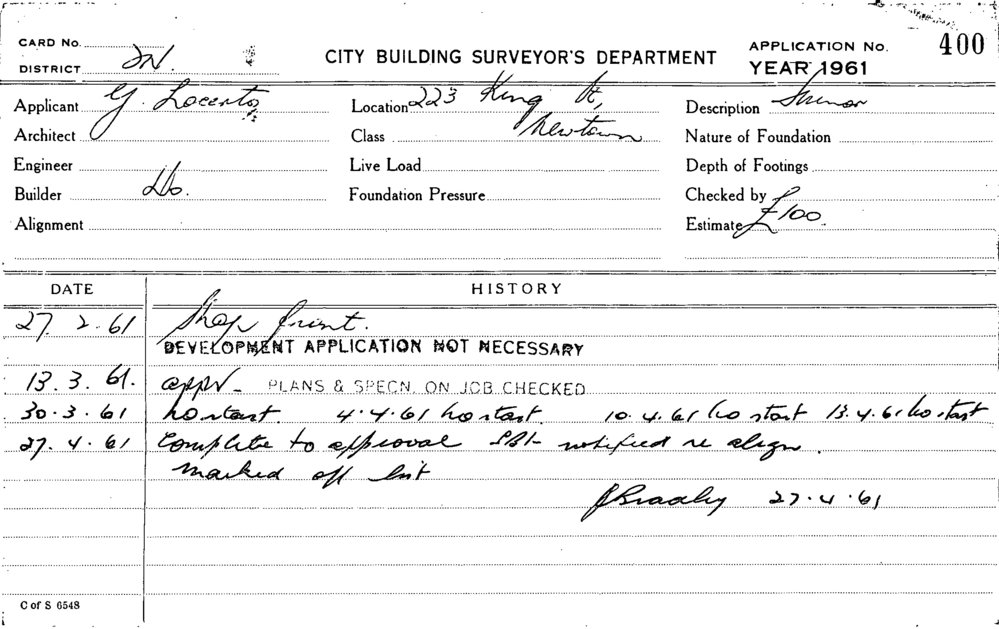 CARD No.
DISTRICT 2N.
CITY BUILDING SURVEYOR'S DEPARTMENT
APPLICATION No. 400
YEAR 1961
Applicant G. Locerto
Architect
Engineer
Builder Do.
Alignment
Location 223 King St,
Newtown
Class
Live Load
Foundation Pressure
Description Minor
Nature of Foundation
Depth of Footings
Checked by
Estimate £100.
DATE HISTORY
27. 2. 61 Shop front.
DEVELOPMENT APPLICATION NOT NECESSARY
13. 3. 61. appv PLANS & SPECN. ON JOB CHECKED
30. 3. 61 no start. 4.4.61 no start. 10.4.61 no start 13.4.61 no start
27. 4. 61 Complete to approval notified re align.
marked off list
JBradley 27.4.61
C of S 6548